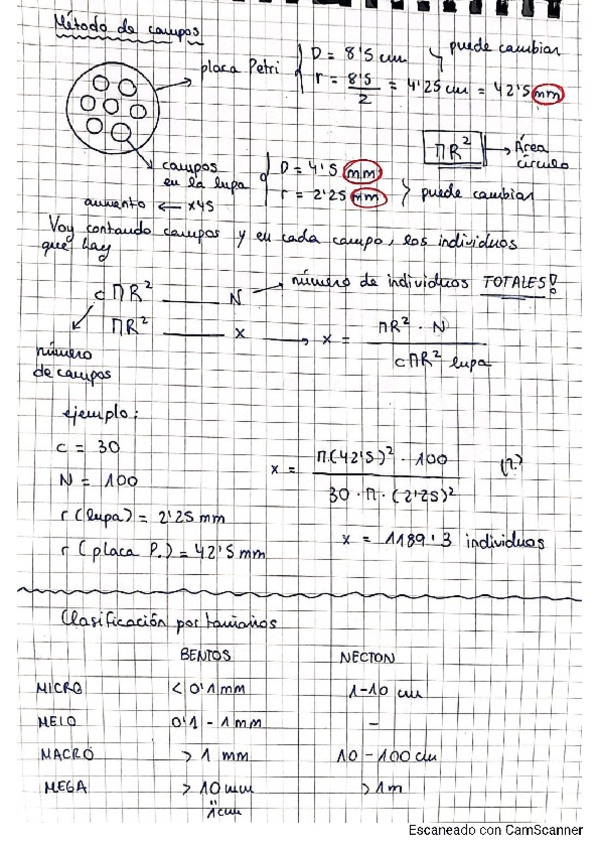 Método de campos
placa Petri
D = 8'5 cm
r = 8'5/2 = 4'25 cm = 42'5 mm
puede cambiar
ΠR² → Área círculo
campos en la lupa
D = 4'5 mm
r = 2'25 mm
puede cambiar
aumento ← x45
Voy contando campos y en cada campo, los individuos
que hay
cΠR² ______ N → número de individuos TOTALES!
ΠR² ______ x → x = ΠR² · N / cΠR² lupa
número
de campos
ejemplo:
c = 30
N = 100
r (lupa) = 2'25 mm
r (placa P.) = 42'5 mm
x = Π·(42'5)² · 100 / 30 · Π · (2'25)² (?)
x = 1189'3 individuos
Clasificación por tamaños
BENTOS NECTON
MICRO < 0'1 mm 1-10 cm
MEIO 0'1 - 1 mm -
MACRO > 1 mm 10 - 100 cm
MEGA > 10 mm > 1 m
"1cm
Escaneado con CamScanner